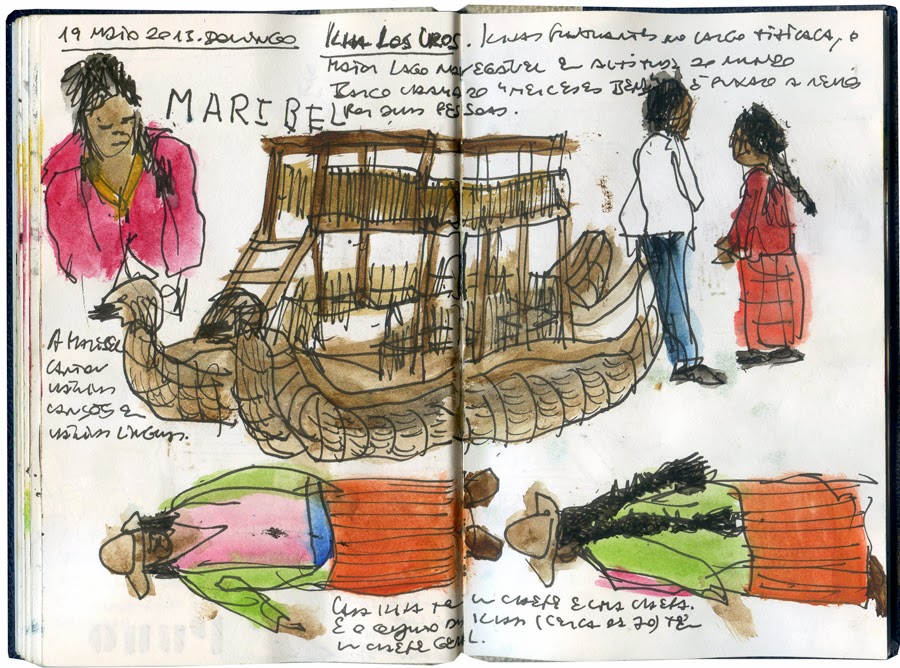 19 MAIO 2013. DOMINGO
ILHA LOS UROS. ILHAS FLUTUANTES NO LAGO TITICACA, O
MAIOR LAGO NAVEGÁVEL EM ALTITUDE DO MUNDO
BARCO CHAMADO "MERCEDES BENZ" É PUXADO A REMOS
POR DUAS PESSOAS.
MARIBEL
A MARIBEL
CANTOU
VÁRIAS
CANÇÕES EM
VÁRIAS LÍNGUAS.
CADA ILHA TEM UM CHEFE E UMA CHEFA.
E O CONJUNTO DAS ILHAS (CERCA DE 70) TEM
UM CHEFE GERAL.